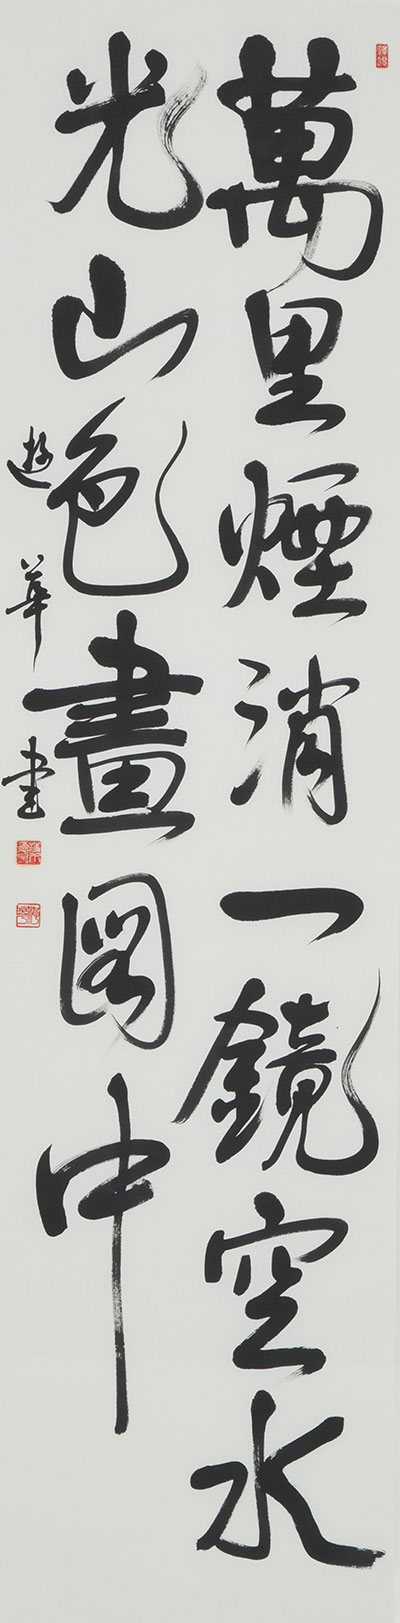 萬里煙消一鏡空水
光山色畫圖中
遊華書